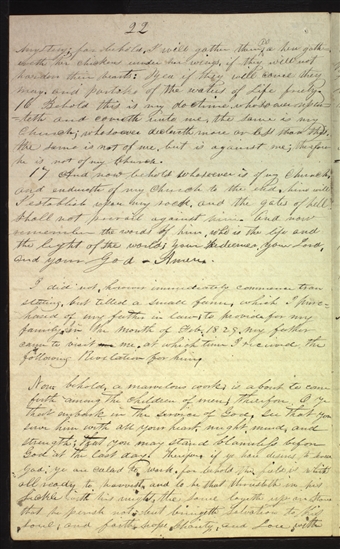 22
mystery; for behold, I will gather them as a hen gather-
eth her chickens under her wings, if they will not
harden their hearts: yea if they will come they
may, and partake of the waters of life freely.
16 Behold this is my doctrine, whosoever repen-
teth and cometh unto me, the same is my
Church; whosoever declareth more or less than this,
the same is not of me, but is against me; therefore
he is not of my Church.
17 And now behold whosoever is of my Church,
and endureth of my Church to the end, him will
I establish upon my rock, and the gates of hell
shall not prevail against him. And now
remember the words of him, who is the life and
the light of the world; your Redeemer, your Lord,
and your God - Amen.
I did not, however immediately commence tran-
slating, but tilled a small farm, which I purc-
hased of my father in law, to provide for my
family. in the month of Feb. 1829, my father
came to visit me, at which time I received, the
following Revelation for him;
Now behold, a marvelous work is about to come
forth among the children of men; therefore, O ye
that embark in the service of God, see that you
serve him with all your heart, might, mind, and
strength; that you may stand blameless before
God at the last day: Therefore, if ye have desires to serve
God; ye are called to work, for behold the field is white
all ready to harvest, and lo he that thrusteth in his
sickle with his might, the same layeth up in store
that he perish not; but bringeth salvation to his
soul; and faith, hope, charity, and love, with